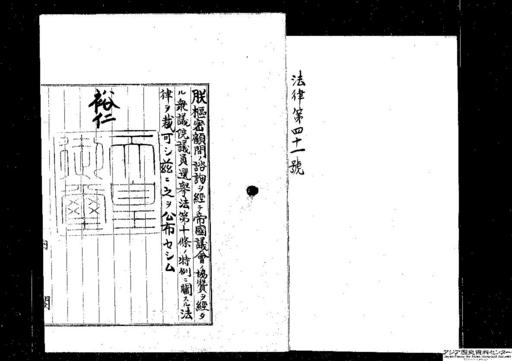 法律第四十一號
朕樞密顧問ノ諮詢ヲ經テ帝國議會ノ協賛ヲ經タ
ル衆議院議員選擧法第十條ノ特例ニ關スル法
律ヲ裁可シ茲ニ之ヲ公布セシム
裕仁
天皇
御璽
内
閣
アジア歴史資料センター